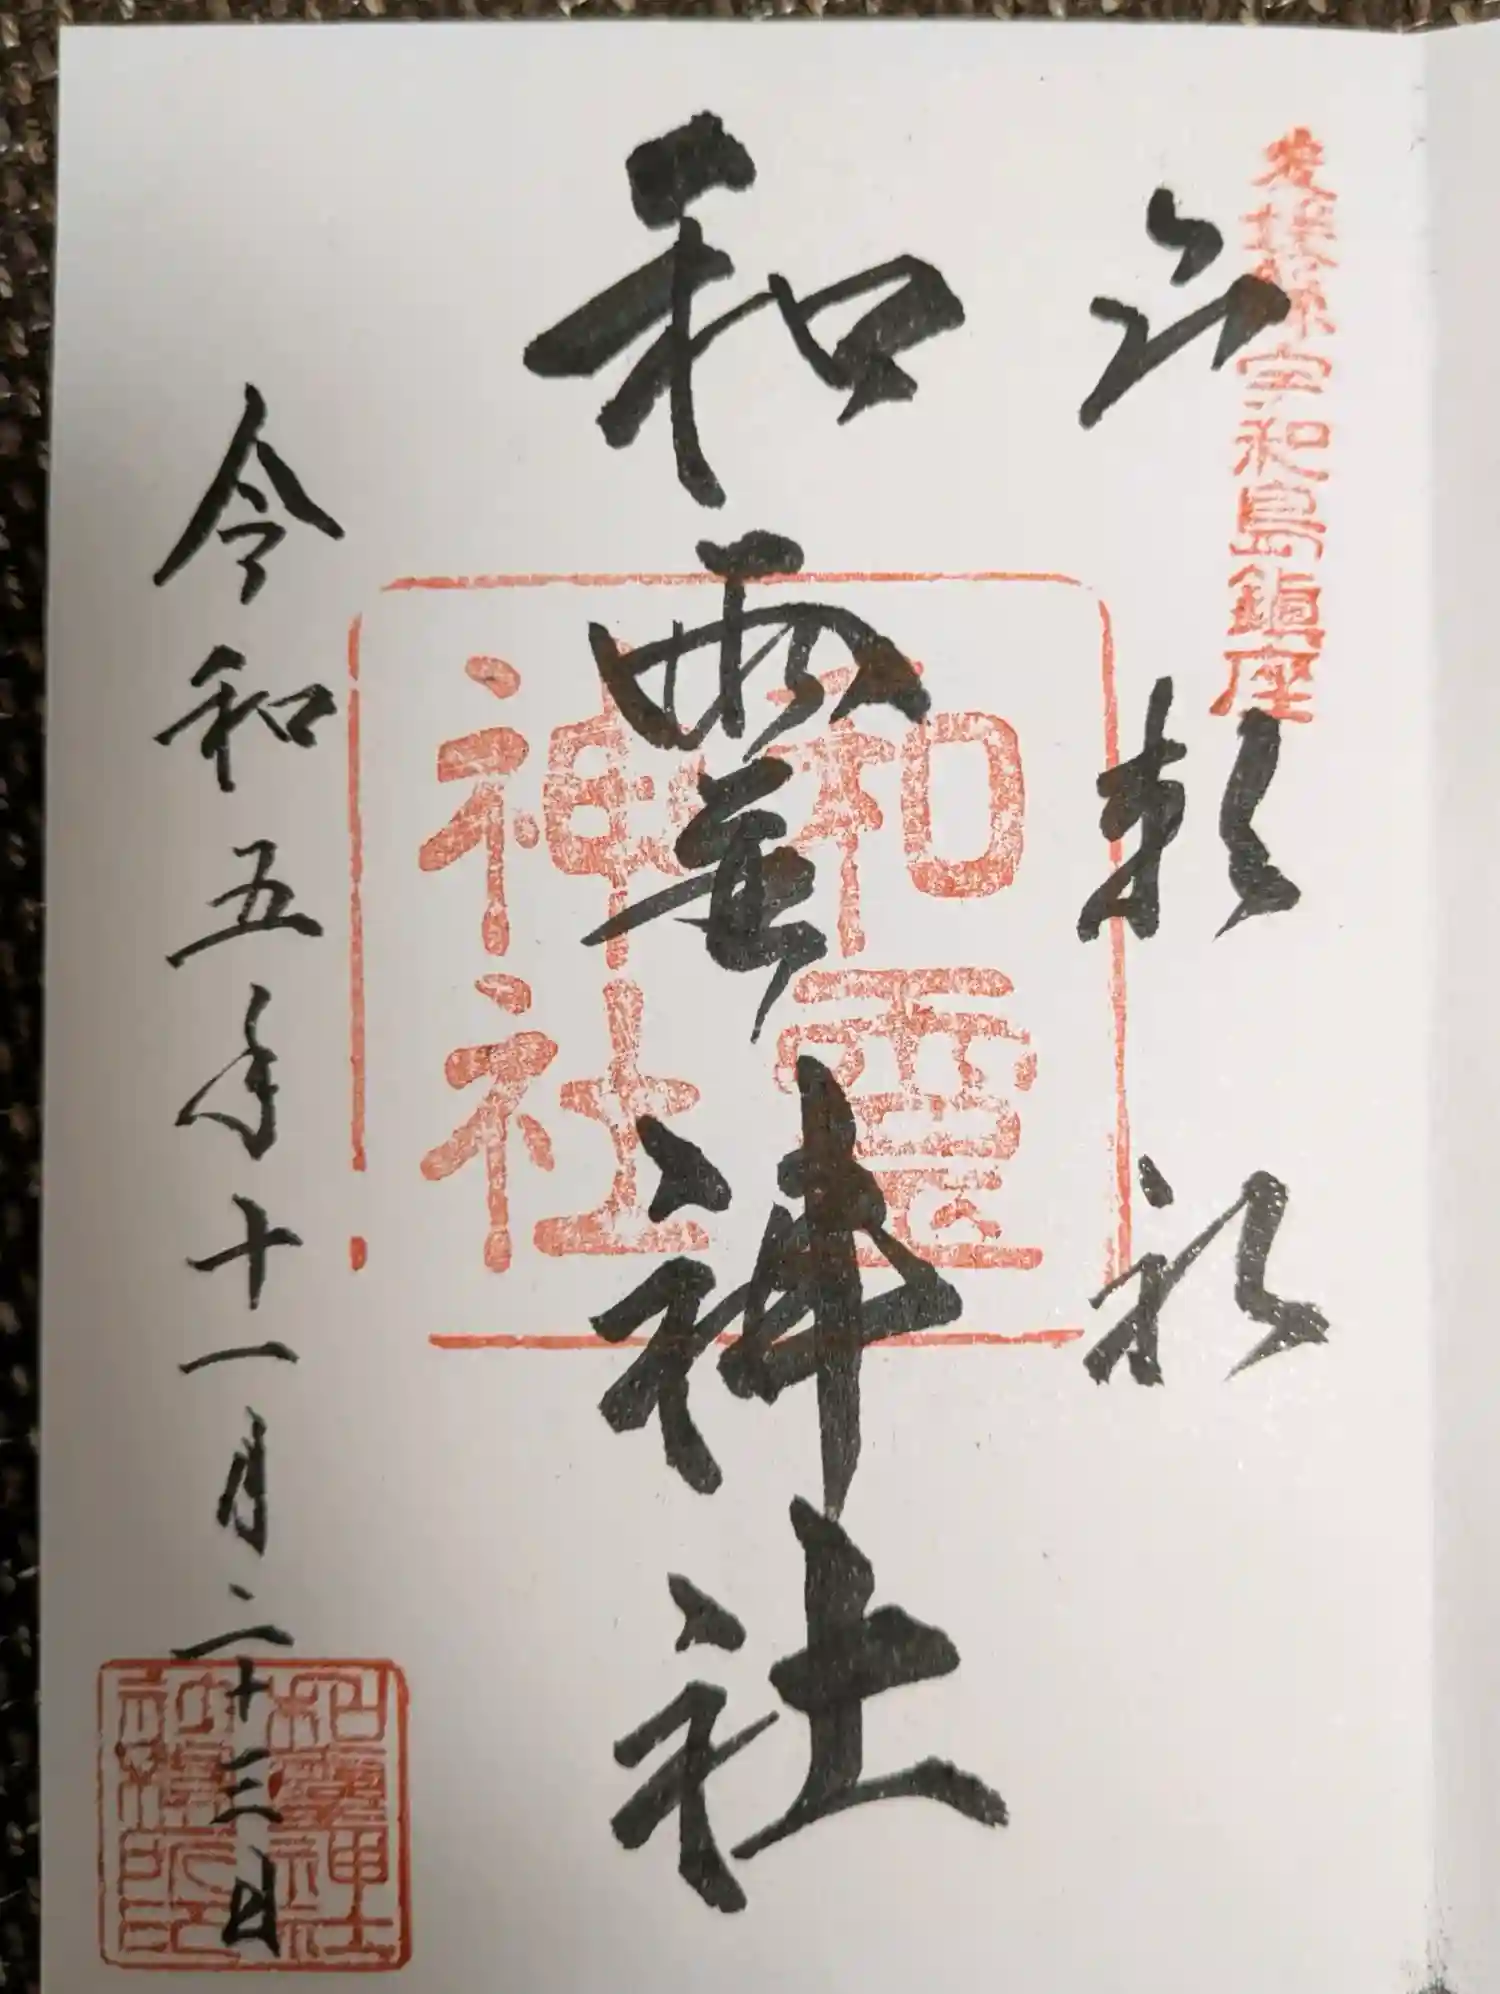 愛媛県宇和島鎮座
六頼礼
和霊神社
和霊
神社
令和五年十一月二十三日
和霊神社